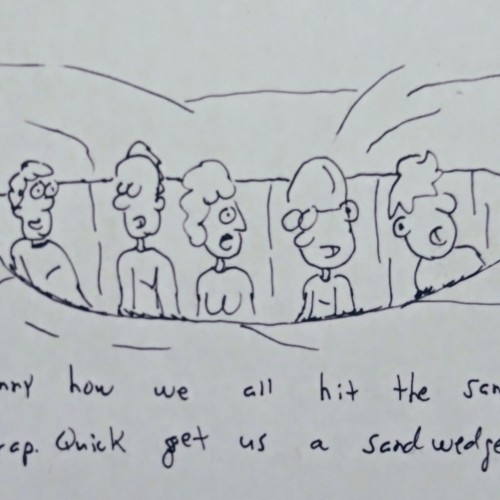 nny how we all hit the san
rap. Quick get us a sand wedge